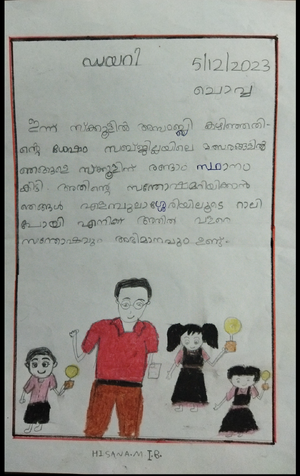 ഡയറി 5/12/2023
ചൊവ്വ
ഇന്ന് സ്ക്കൂളിൽ അസംബ്ലി കഴിഞ്ഞതി-
ന്റെ ശേഷം സബ്ജില്ലയിലെ മത്സരങ്ങളിൽ
ഞങ്ങളുടെ സ്ക്കൂളിന് രണ്ടാം സ്ഥാനം
കിട്ടി അതിന്റെ സന്തോഷമറിയിക്കാൻ
ഞങ്ങൾ റാലി
പോയി എനിക്ക് അതിൽ വളരെ
സന്തോഷവും അഭിമാനവും ഉണ്ട്.
HISANA.M I.B.